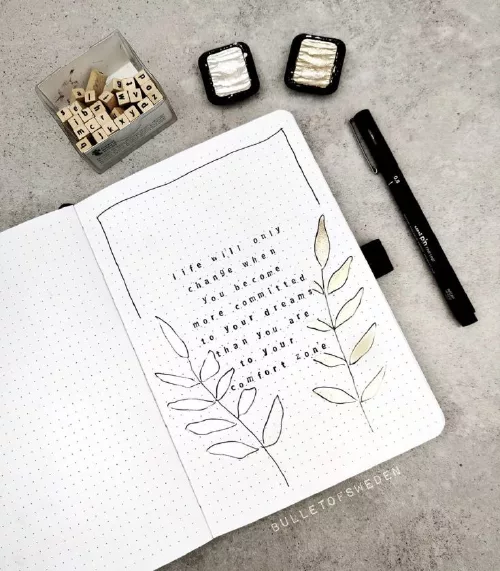 life will only
change when
you become
more committed
to your dreams
than you are
to your
comfort zone
0.8
uni pin
BULLETOFSWEDEN